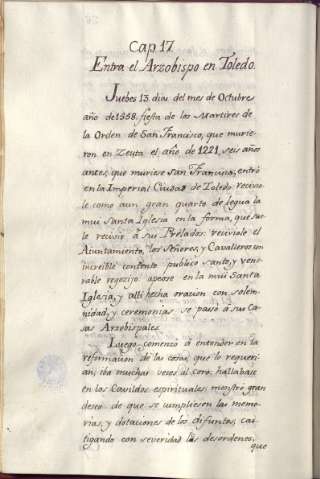 Cap 17
Entra el Arzobispo en Toledo.
Juebes 13 dias del mes de Octubre
año de 1558, fiesta de los Martires de
la Orden de San Francisco, que murie-
ron en Zeuta el año de 1221, seis años
antes, que muriese San Francisco, entró
en la Imperial Ciudad de Toledo: recivio-
le como aun gran quarto de legua la
mui Santa Iglesia en la forma, que sue
le recivir á sus Prelados: reciviole el
Aiuntamiento, los Señores, y Cavalleros con
increible contento publico santo, y vene-
rable regozijo: apeose en la mui Santa
Iglesia, y alli hecha oracion con solem-
nidad, y ceremonias se pasó á sus Ca-
sas Arzobispales.
Luego comenzó á entender en la
reformacion de las cosas, que lo requeri-
an, iba muchas veces al coro, hallabase
en los Cavildos espirituales, mostró gran
deseo de que se cumpliesen las memo-
rias, y dotaciones de los difuntos, cas-
tigando con severidad las desordenes,
que